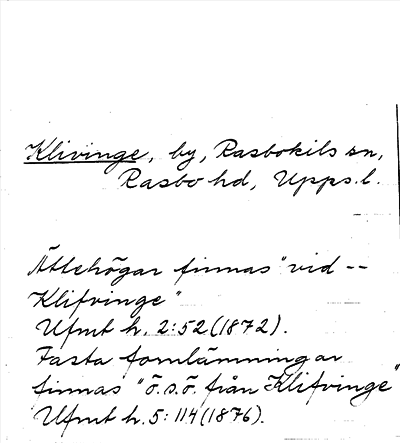 Klivinge, by, Rasbokils sn,
Rasbo hd, Upps. l.
Ättehögar finnas "vid --
Klifvinge"
Ufmt h. 2:52 (1872).
Fasta fornlämningar
finnas "ö.s.ö. från Klifvinge"
Ufmt h. 5:114 (1876).